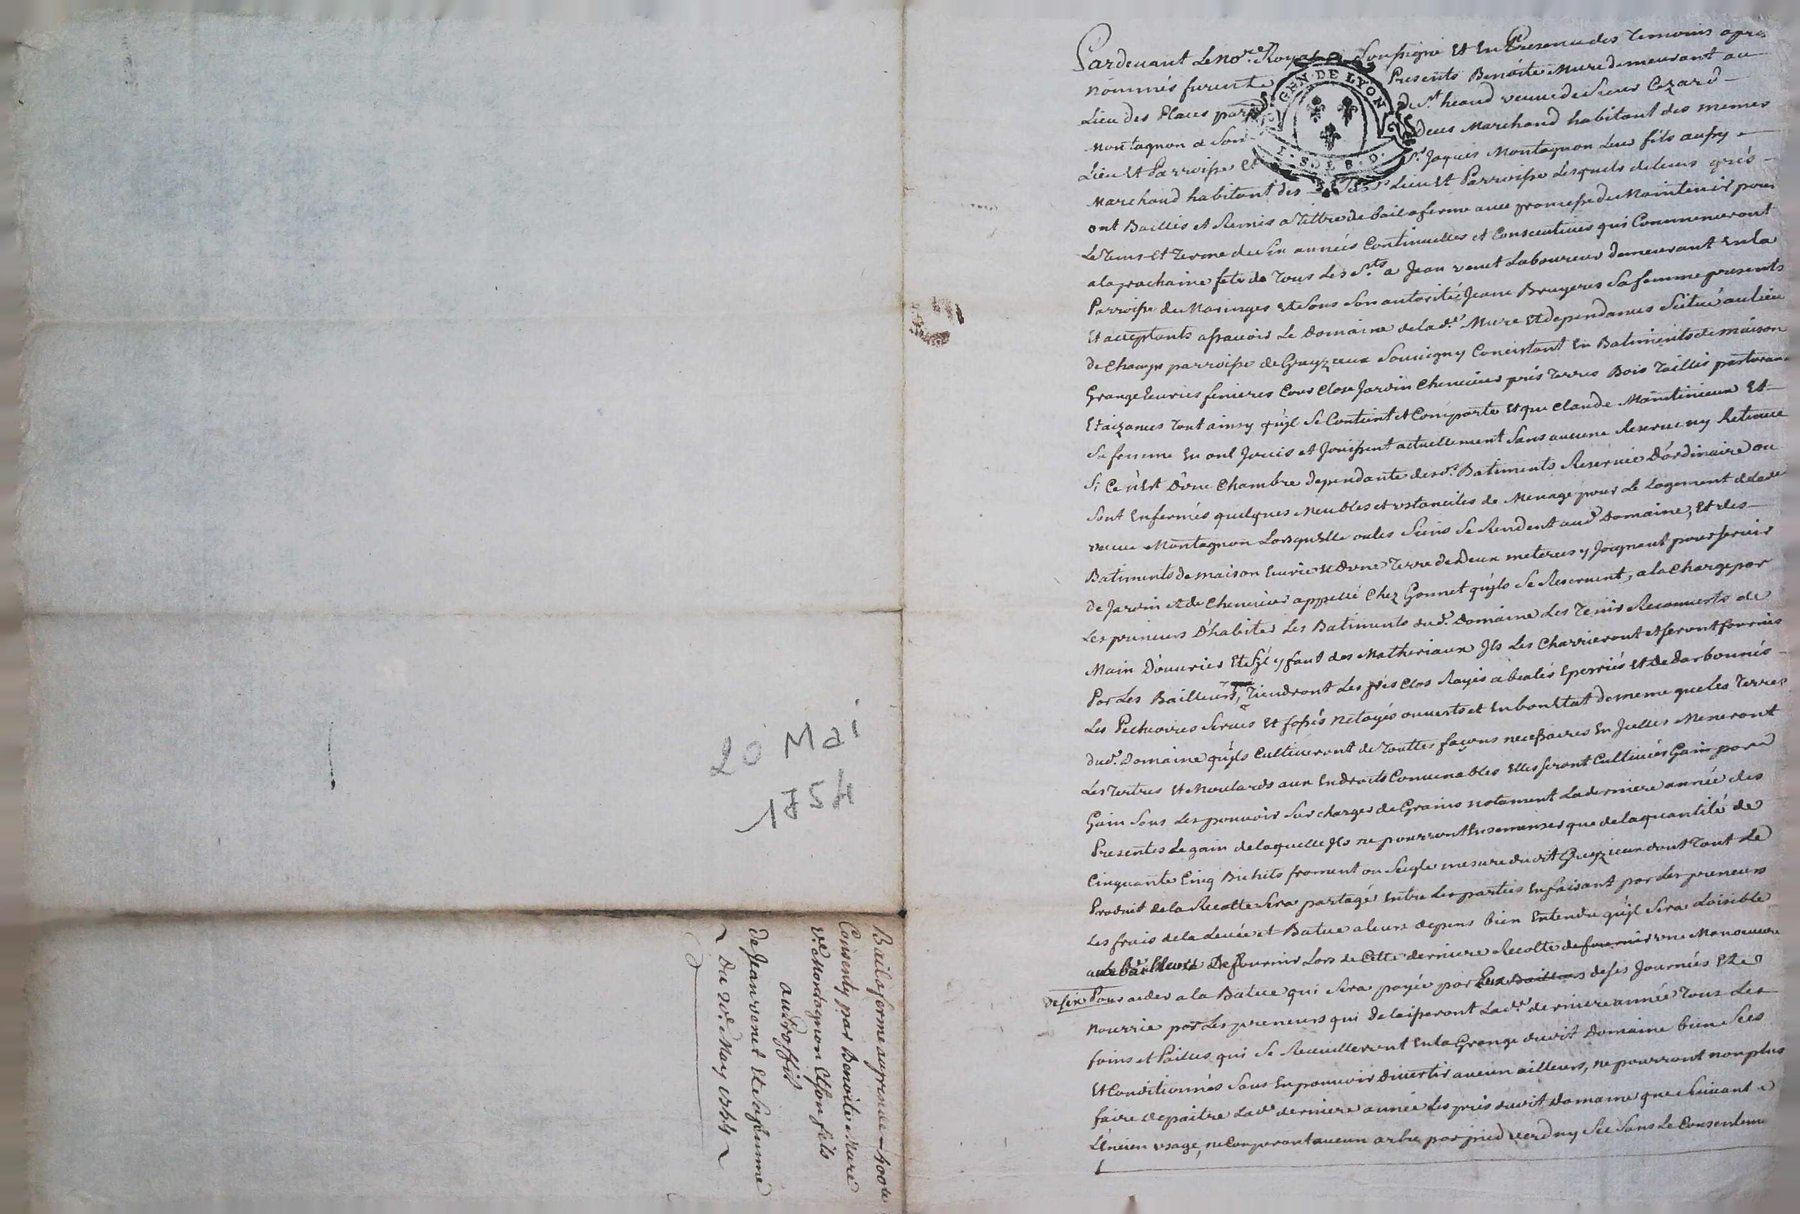 20 Mai
1754
Bail a ferme au prix de 400 lt
Consenty par Benoite Mure
ve Montagnon et son fils
au proffit
de Jean venet et sa femme
Du 20e May 1754
Pardevant Le No.re Royal Soussigné Et En Presence des Temoins apres
nommés furent Presents Benoite Mure demeurant au
Lieu des Places par de St heand veuve de Sieur Cezard
Montagnon a son Marchand habitant des memes
Lieu Et Parroisse Et Sr Jaques Montagnon Leur fils aussy
Marchand habitant des Lieu Et Parroisse Lesquels de leurs grés
ont Baillés et Remis a Tittre de bail a ferme avec promesse de Maintenir pour
Le Tems Et Terme de six années Continuelles et Consecutives qui Commenceront
a la prochaine fete de Tous Les Sts a Jean venet Laboureur demeurant En la
Parroisse de Maringes Et de Sous Son autorité Jeane Bruyeres Sa femme presents
Et acceptants assavoir Le Domaine de lad.e Mure Et dependances Scitué au lieu
de Champs parroisse de Grezieux Souvigny Concistant En Batiments de maison
Grange Ecuries fenieres Cour Clos Jardin Chenevier prés Terres Bois Taillis paturaux
Et aizances Tout ainsy qu'il Se Contient et Comporte Et que Claude Maintinieux Et
Sa femme En ont Jouis et Jouissent actuellement Sans aucune Reserve ny Retenue
Si Ce n'est D'une Chambre dependante desd. Batiments Reservée D'ordinaire ou
Sont Enfermés quelques Meubles et ustanciles de Menage pour Le Logement de lade
veuve Montagnon Lorsqu'Elle ou les Siens Se Rendent aud. Domaine, Et des
Batiments de maison Ecurie Et D'une Terre de Deux meteres y Joignant pour servir
De Jardin et de Chenevier appellé Chez Gonnet qu'ils Se Reservent, a la Charge par
Les preneurs D'habiter Les Batiments dud. Domaine Les Tenir Recouverts de
Main D'ouvrier Et S'il y faut des Matheriaux Ils Les Charrieront et seront fournis
Par Les Bailleurs, Tiendront Les prés Clos Rayés abealés Eperriés Et Dedarbounés
Les Pecheoires Serves Et fossés netoyés ouverts et En bon Etat de meme que les Terres
dud. Domaine qu'ils Cultiveront de Touttes façons necessaires En Icelles Meneront
Les Tertres Et Moulards aux Endroits Convenables Elles seront Cultivées Gain par
Gain Sans Les pouvoir Surcharger de Grains notament La derniere année des
Presentes Le gain de laquelle Ils ne pourront Ensemenser que de la quantité de
Cinquante Cinq Bichets froment ou Seigle mesure dudit Grezieux dont Tout Le
Produit de la Recolte Sera partagé Entre Les parties En faisant par Les preneurs
Les frais de la Levée et Batue a leurs depens bien Entendu qu'il Sera Loisible
aux Bailleurs De fournir Lors de Cette derniere Recolte de fournir une Manoeuvre
de six Pour aider a la Batue qui Sera payée par Les Bailleurs de ses Journées Et
Nourrie par Les preneurs qui delaisseront Lad.e derniere année Tous Les
foins et Pailles qui Se Recueilleront En la Grange dudit Domaine bien Secs
Et Conditionnés Sans En pouvoir Divertir aucun ailleurs, ne pourront non plus
faire depaitre Lade derniere année Les prés dudit Domaine que Suivant
L'Encien usage, ne Couperont aucun arbre par pied verd ny Sec Sans Le Consentement
GEN. DE LYON